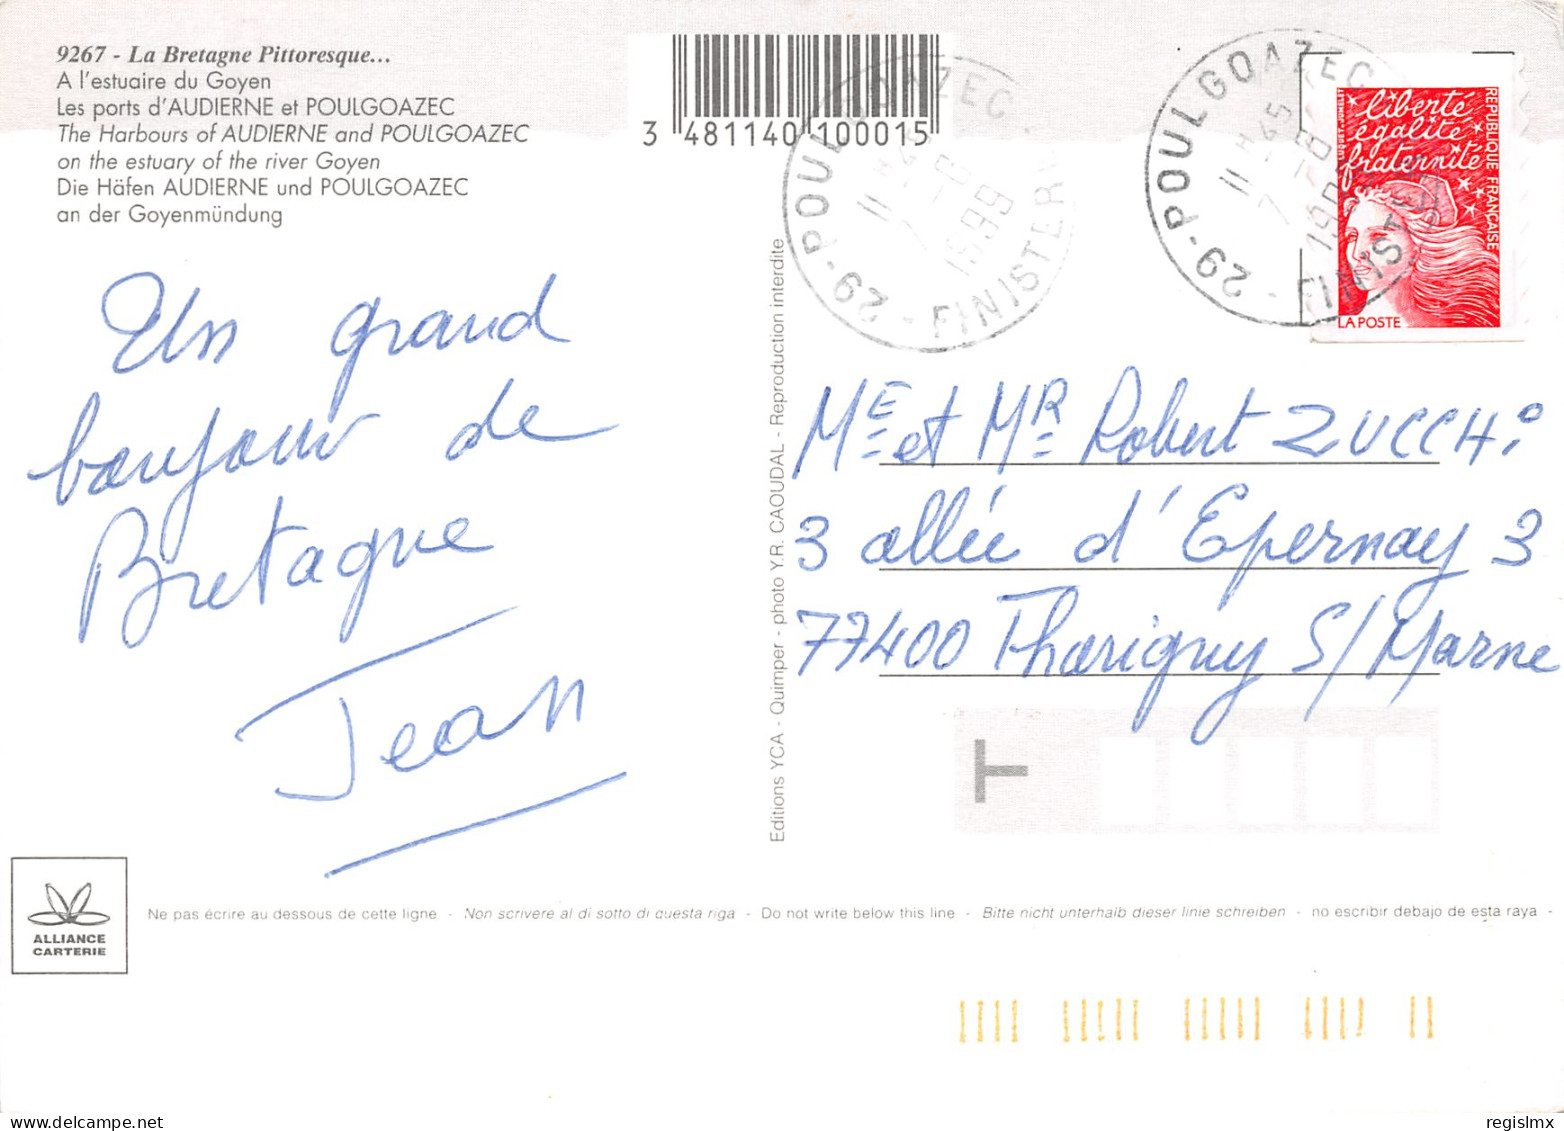 9267 - La Bretagne Pittoresque...
A l'estuaire du Goyen
Les ports d'AUDIERNE et POULGOAZEC
The Harbours of AUDIERNE and POULGOAZEC
on the estuary of the river Goyen
Die Häfen AUDIERNE und POULGOAZEC
an der Goyenmündung
3 481140 100015
29 - POULGOAZEC
11 H 45
7 - 8
1999
- FINISTERE
29 - POULGOAZEC
11 H 45
7 - 8
199
- FINISTERE
liberté
égalité
fraternité
LUQUET-JUMELET
REPUBLIQUE FRANÇAISE
LA POSTE
Un grand
bonjour de
Bretagne
Jean
Editions YCA - Quimper - photo Y.R. CAOUDAL - Reproduction interdite
ME et MR Robert ZUCCHi
3 allée d'Epernay 3
77400 Thorigny S/Marne
T
ALLIANCE
CARTERIE
Ne pas écrire au dessous de cette ligne - Non scrivere al di sotto di questa riga - Do not write below this line - Bitte nicht unterhalb dieser linie schreiben - no escribir debajo de esta raya -
regislmx